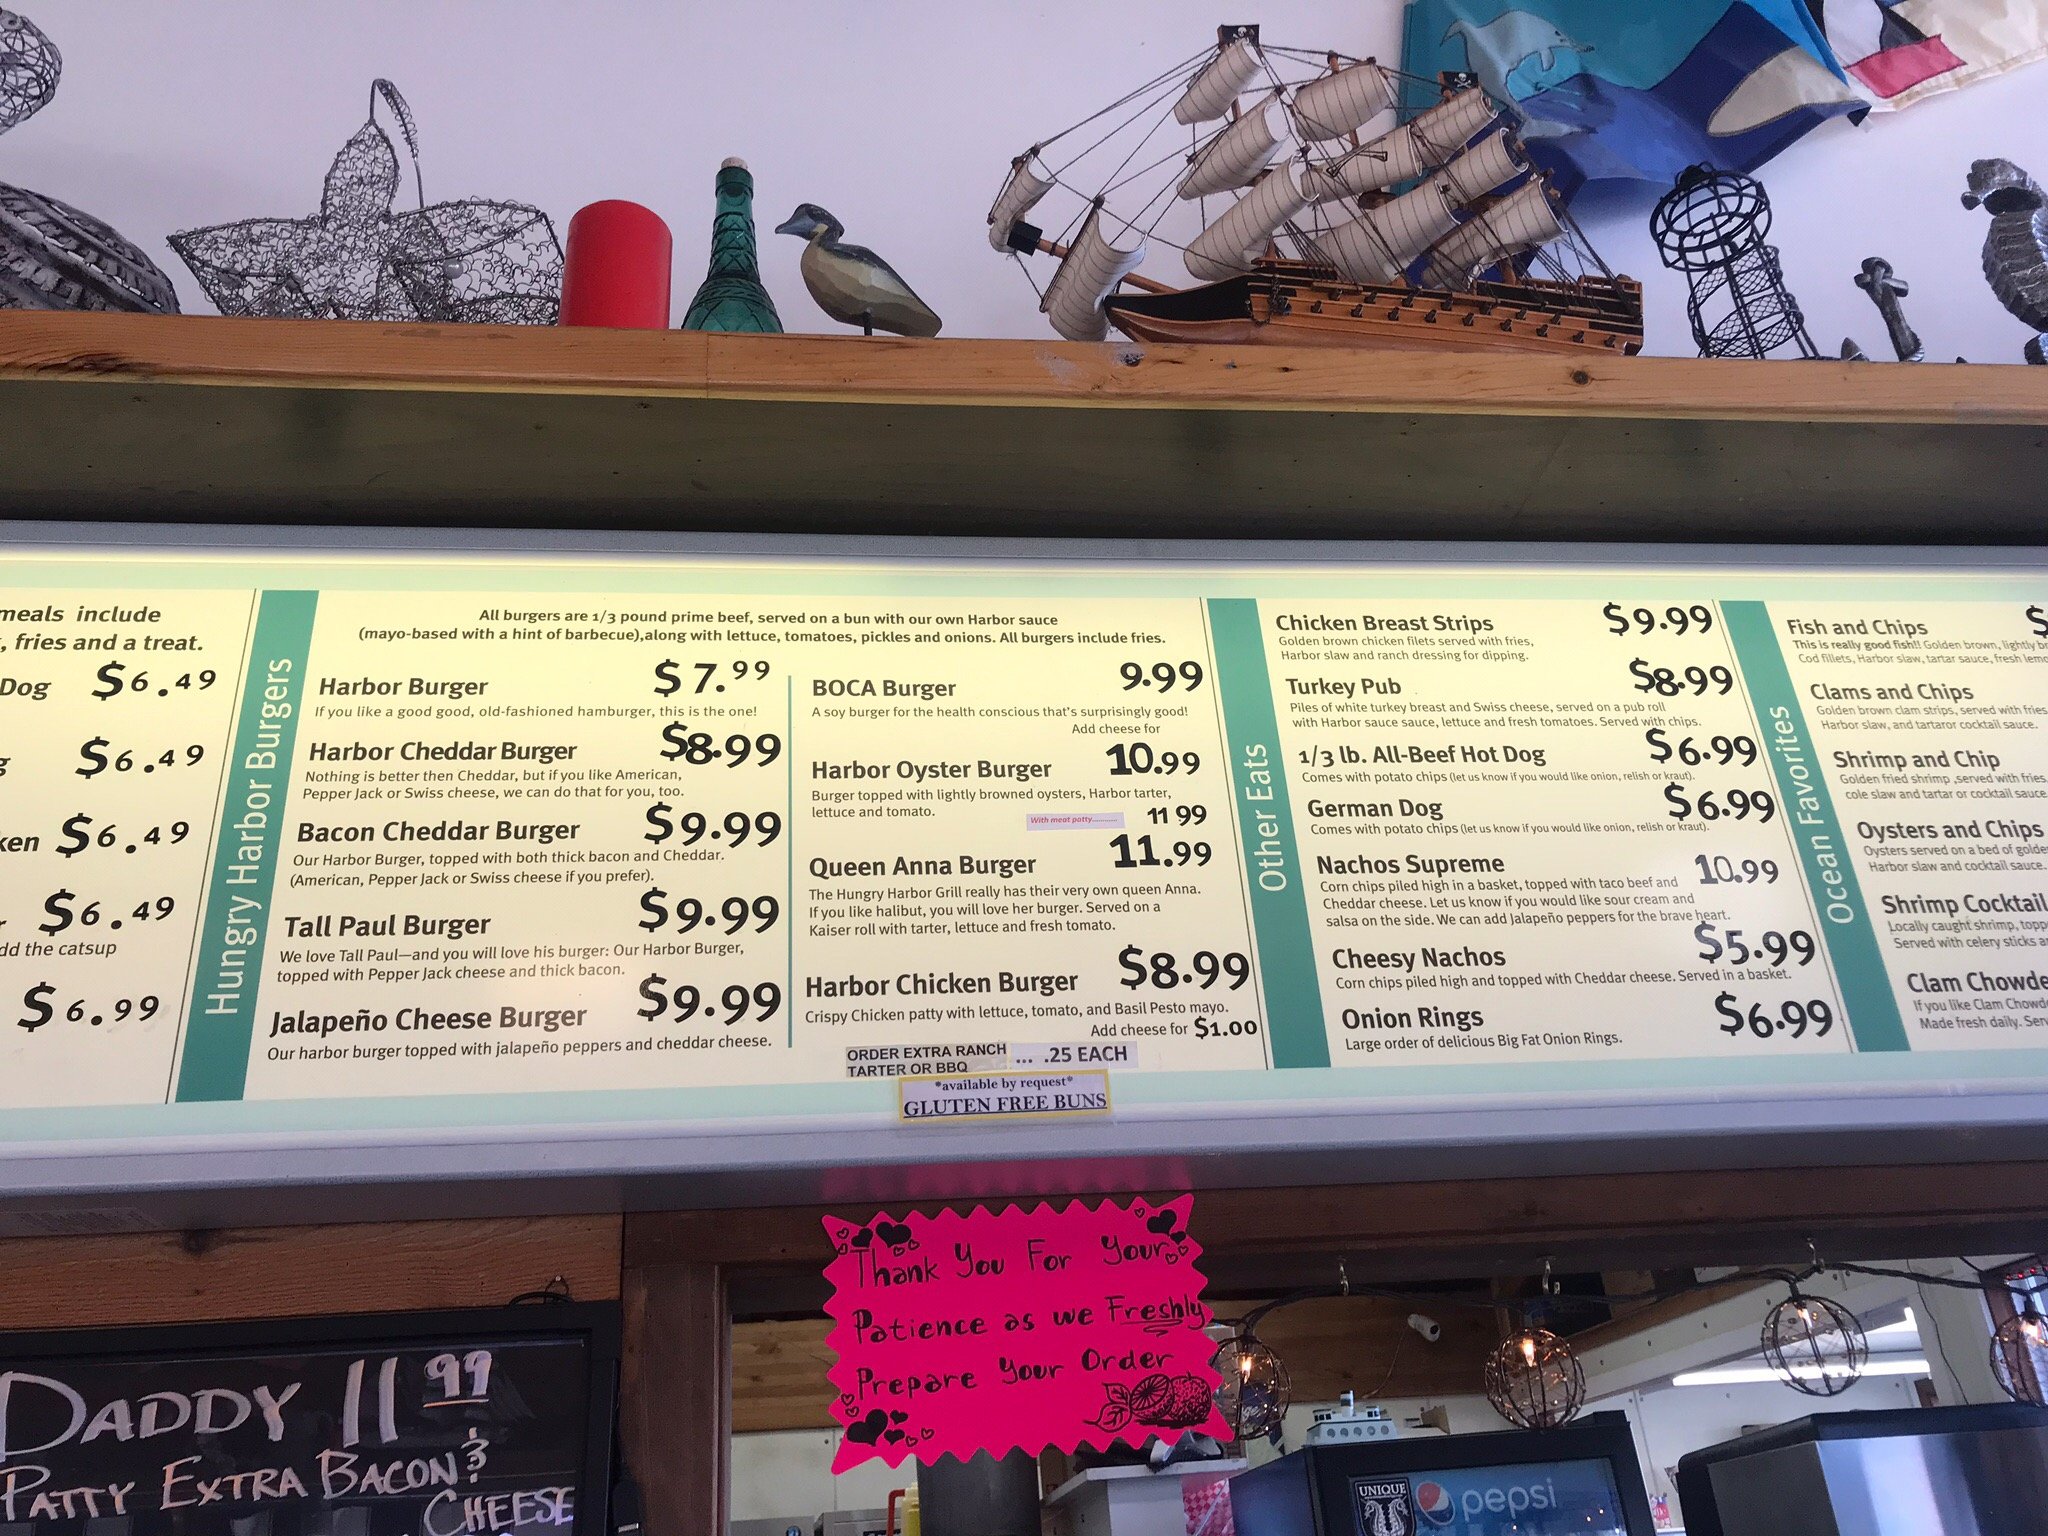 meals include
, fries and a treat.
Dog $6.49
$6.49
ken $6.49
$6.49
dd the catsup
$6.99
Hungry Harbor Burgers
All burgers are 1/3 pound prime beef, served on a bun with our own Harbor sauce
(mayo-based with a hint of barbecue),along with lettuce, tomatoes, pickles and onions. All burgers include fries.
Harbor Burger $7.99
If you like a good good, old-fashioned hamburger, this is the one!
Harbor Cheddar Burger $8.99
Nothing is better then Cheddar, but if you like American,
Pepper Jack or Swiss cheese, we can do that for you, too.
Bacon Cheddar Burger $9.99
Our Harbor Burger, topped with both thick bacon and Cheddar.
(American, Pepper Jack or Swiss cheese if you prefer).
Tall Paul Burger $9.99
We love Tall Paul—and you will love his burger: Our Harbor Burger,
topped with Pepper Jack cheese and thick bacon.
Jalapeño Cheese Burger $9.99
Our harbor burger topped with jalapeño peppers and cheddar cheese.
BOCA Burger 9.99
A soy burger for the health conscious that's surprisingly good!
Add cheese for
Harbor Oyster Burger 10.99
Burger topped with lightly browned oysters, Harbor tarter,
lettuce and tomato.
With meat patty............ 11 99
Queen Anna Burger 11.99
The Hungry Harbor Grill really has their very own queen Anna.
If you like halibut, you will love her burger. Served on a
Kaiser roll with tarter, lettuce and fresh tomato.
Harbor Chicken Burger $8.99
Crispy Chicken patty with lettuce, tomato, and Basil Pesto mayo.
Add cheese for $1.00
ORDER EXTRA RANCH ... .25 EACH
TARTER OR BBQ
*available by request*
GLUTEN FREE BUNS
Other Eats
Chicken Breast Strips $9.99
Golden brown chicken filets served with fries,
Harbor slaw and ranch dressing for dipping.
Turkey Pub $8.99
Piles of white turkey breast and Swiss cheese, served on a pub roll
with Harbor sauce sauce, lettuce and fresh tomatoes. Served with chips.
1/3 lb. All-Beef Hot Dog $6.99
Comes with potato chips (let us know if you would like onion, relish or kraut).
German Dog $6.99
Comes with potato chips (let us know if you would like onion, relish or kraut).
Nachos Supreme 10.99
Corn chips piled high in a basket, topped with taco beef and
Cheddar cheese. Let us know if you would like sour cream and
salsa on the side. We can add Jalapeño peppers for the brave heart.
Cheesy Nachos $5.99
Corn chips piled high and topped with Cheddar cheese. Served in a basket.
Onion Rings $6.99
Large order of delicious Big Fat Onion Rings.
Ocean Favorites
Fish and Chips $
This is really good fish!! Golden brown, lightly br
Cod fillets, Harbor slaw, tartar sauce, fresh lemo
Clams and Chips
Golden brown clam strips, served with fries,
Harbor slaw, and tartaror cocktail sauce.
Shrimp and Chip
Golden fried shrimp ,served with fries,
cole slaw and tartar or cocktail sauce.
Oysters and Chips
Oysters served on a bed of golde
Harbor slaw and cocktail sauce.
Shrimp Cocktail
Locally caught shrimp, topp
Served with celery sticks a
Clam Chowde
If you like Clam Chowd
Made fresh daily. Serv
Thank You For Your
Patience as we Freshly
Prepare Your Order
DADDY 11 99
PATTY EXTRA BACON &
CHEESE
UNIQUE
pepsi